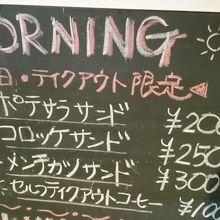 ORNING
日・テイクアウト限定
ポテサラサンド ¥200
コロッケサンド ¥250
・メンチカツサンド ¥300
・セルフテイクアウトコーヒー ¥100